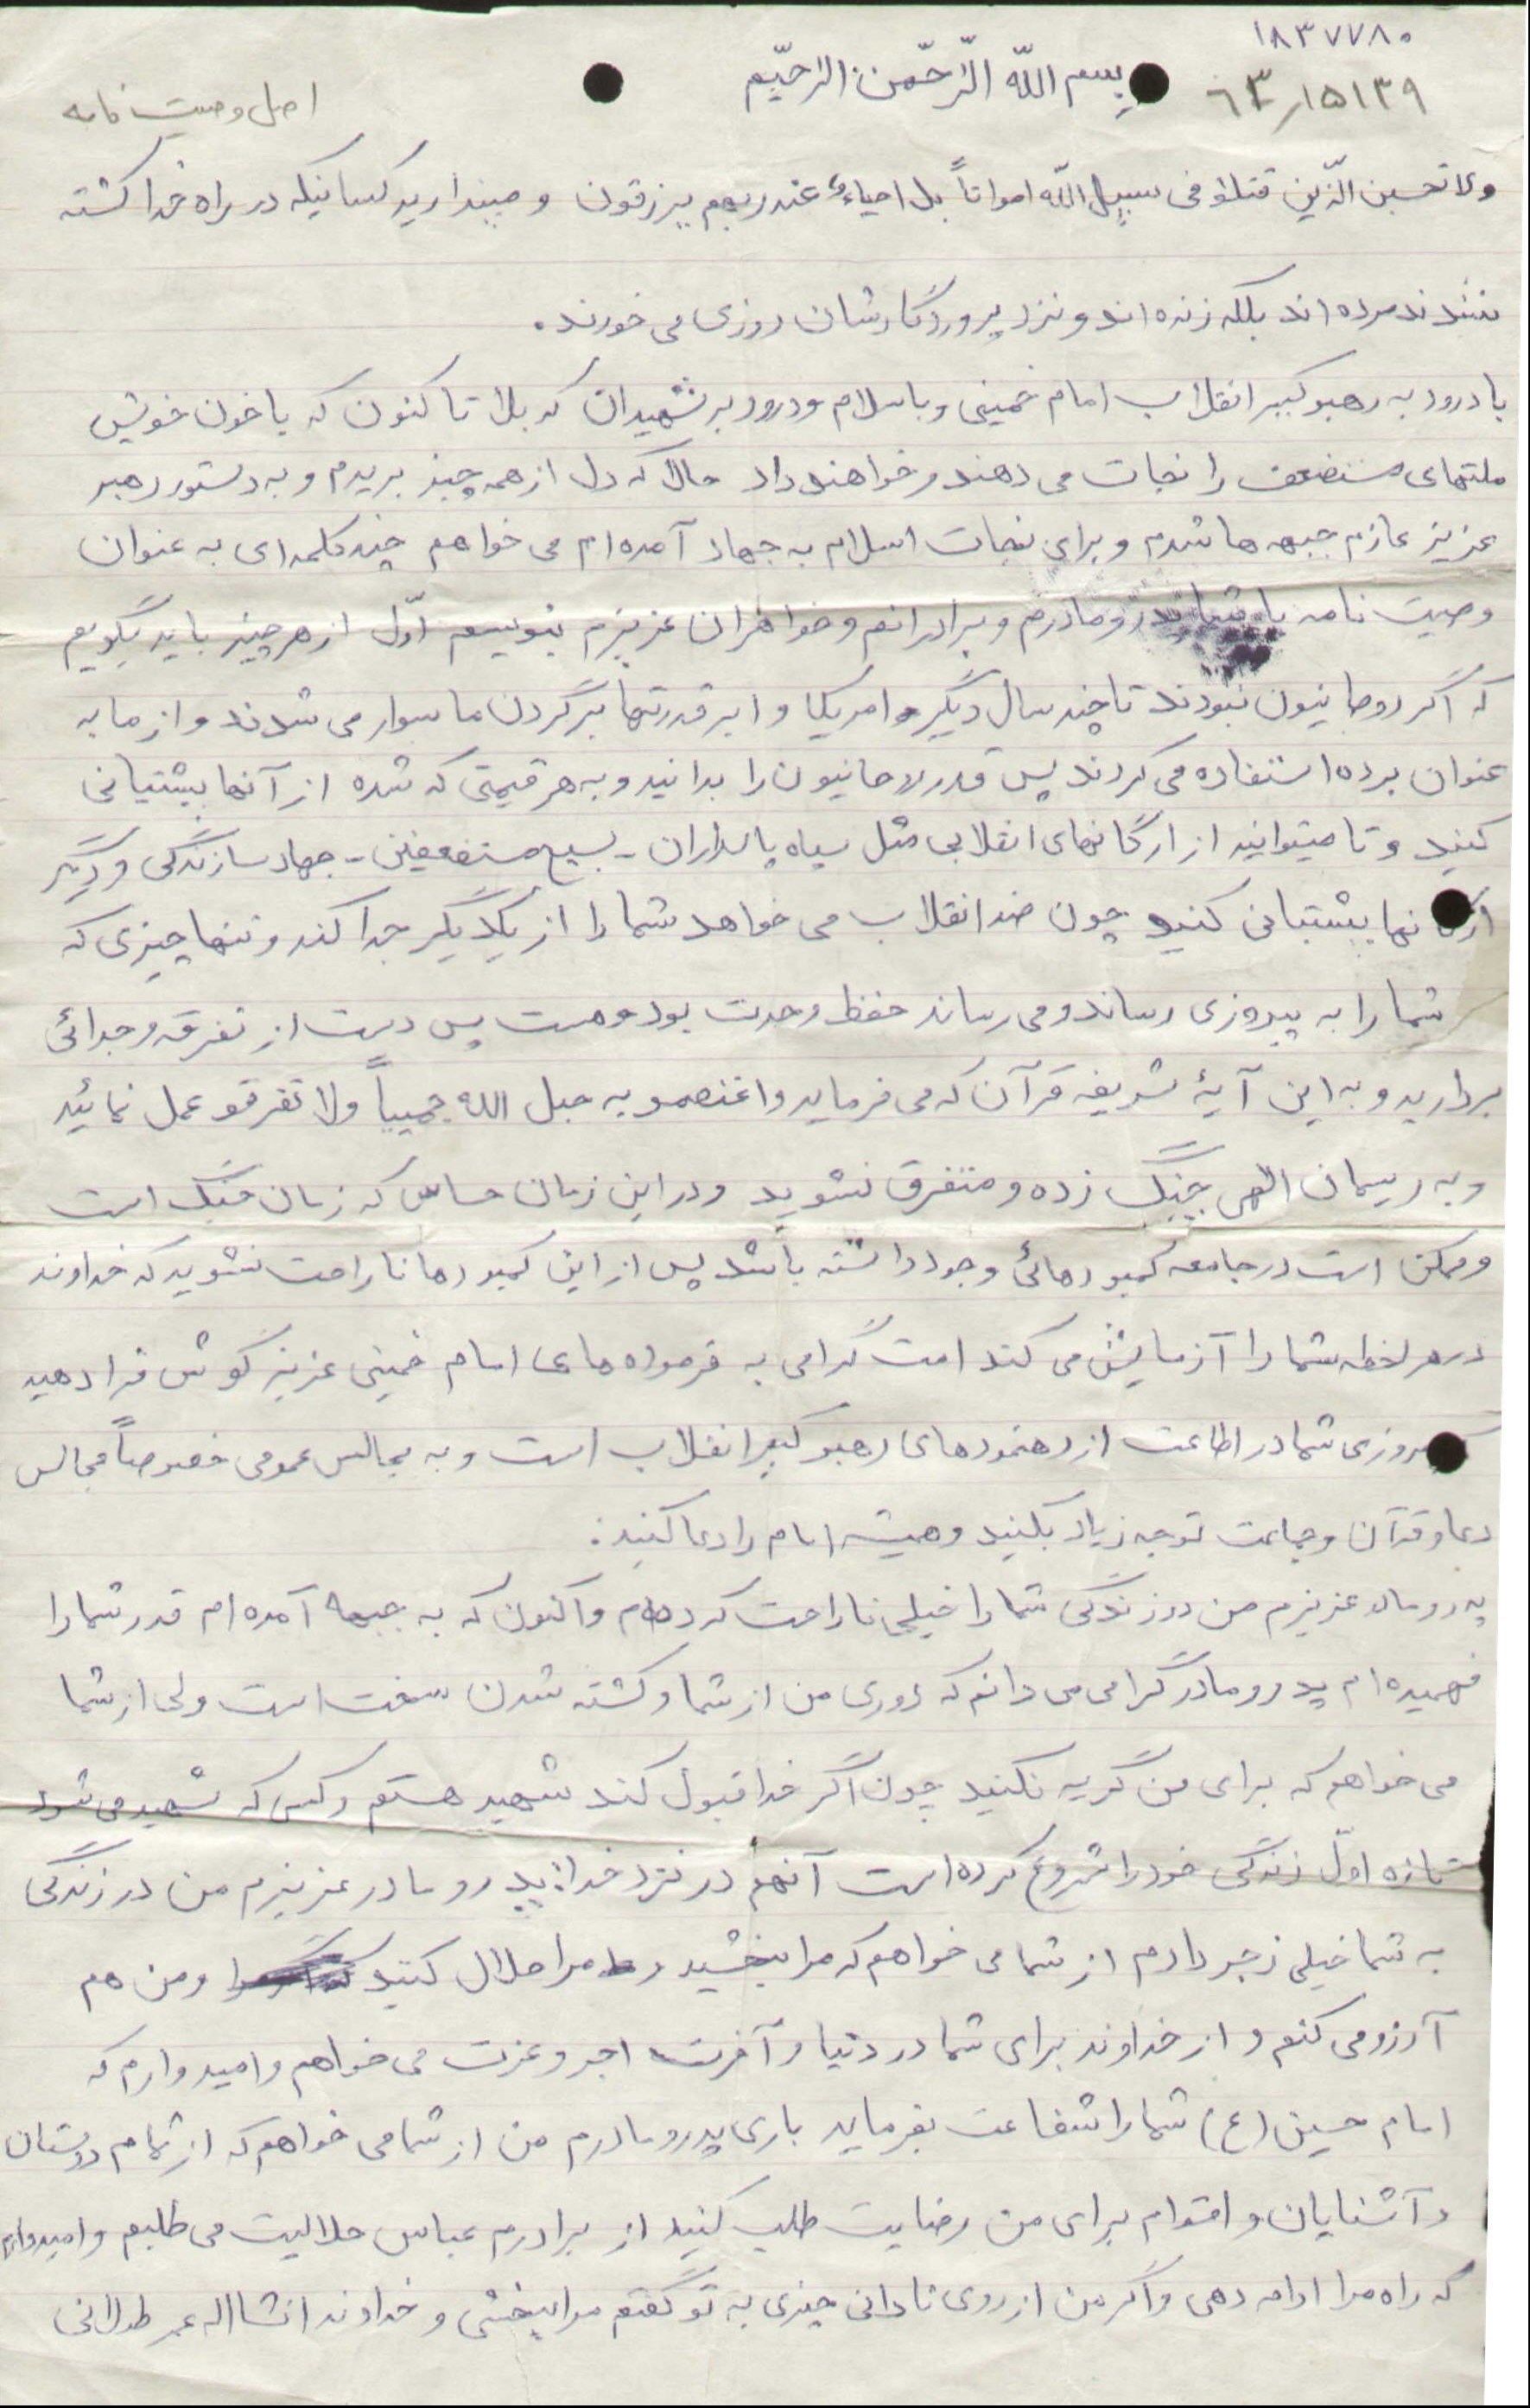 ۱۸۳۷۷۸۰
بسم اللّه الرّحمن الرحیّم
۱۵۱۳۹
اصل وصیت نامه
ولا تحسبن الّذین قتلوا فی سبیل اللّه امواتاً بل احیاء عند ربهم یرزقون و مپندارید کسانیکه در راه خدا کشته
شدند مرده اند بلکه زنده اند و نزد پروردگارشان روزی می خورند.
با درود به رهبر کبیر انقلاب امام خمینی و با سلام و درود بر شهیدان کربلا تا کنون که با خون خویش
ملتهای مستضعف را نجات می دهند و خواهند داد حال که دل از همه چیز بریدم و به دستور رهبر
عزیز عازم جبهه ها شدم و برای نجات اسلام به جهاد آمده ام می خواهم چند کلمه ای به عنوان
وصیت نامه با شما پدر و مادرم و برادرانم و خواهران عزیزم بنویسم اوّل از هر چیز باید بگویم
که اگر روحانیون نبودند تا چند سال دیگر امریکا و ابر قدرتها بر گردن ما سوار می شدند و از ما به
عنوان برده استفاده می کردند پس قدر روحانیون را بدانید و به هر قیمتی که شده از آنها پشتیبانی
کنید و تا میتوانید از ارگانهای انقلابی مثل سپاه پاسداران - بسیج مستضعفین - جهاد سازندگی و دیگر
ارگانها پشتبانی کنید چون ضد انقلاب می خواهد شما را از یکدیگر جدا کند و تنها چیزی که
شما را به پیروزی رساند و می رساند حفظ وحدت بود و هست پس دست از تفرقه و جدائی
بردارید و به این آیۀ شریفه قرآن که می فرماید واعتصمو به حبل الله جمیعاً ولا تفرقو عمل نمائید
و به ریسمان الهی چنگ زده و متفرق نشوید و در این زمان حساس که زمان جنگ است
و ممکن است در جامعه کمبودهائی وجود داشته باشد پس از این کمبودها ناراحت نشوید که خداوند
در هر لحظه شما را آزمایش می کند امت گرامی به فرموده های امام خمینی عزیز گوش فرا دهید
که پیروزی شما در اطاعت از رهنمودهای رهبر کبیر انقلاب است و به مجالس عمومی خصوصاً مجالس
دعا و قرآن و جماعت توجه زیاد بکنید و همیشه امام را دعا کنید.
پدر و مادر عزیزم من در زندگی شما را خیلی ناراحت کرده ام و اکنون که به جبهه آمده ام قدر شما را
فهمیده ام پدر و مادر گرامی می دانم که دوری من از شما و کشته شدن سخت است ولی از شما
می خواهم که برای من گریه نکنید چون اگر خدا قبول کند شهید هستم و کسی که شهید می شود
تازه اوّل زندگی خود را شروع کرده است آنهم در نزد خدا. پدر و مادر عزیزم من در زندگی
به شما خیلی زجر دادم از شما می خواهم که مرا ببخشید و مرا حلال کنید و من هم
آرزو می کنم و از خداوند برای شما در دنیا و آخرت اجر و عزت می خواهم و امیدوارم که
امام حسین (ع) شما را شفاعت بفرماید باری پدر و مادرم من از شما می خواهم که از تمام دوستان
و آشنایان و اقوام برای من رضایت طلب کنید از برادرم عباس حلالیت می طلبم و امیدوارم
که راه مرا ادامه دهی و اگر من از روی نادانی چیزی به تو گفتم مرا ببخشی و خداوند انشااله عمر طولانی